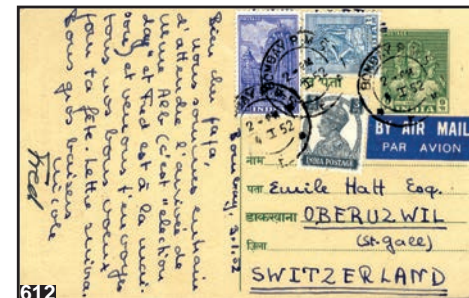 Bombay, 3.1.52
Bien cher papa,
nous sommes entrain
d'attendre l'arrivée de
Mme (c'est "election
day" et Fred est à la mai-
son) et venons t'envoyer
tous nos voeux
pour ta fête. Lettre suivra.
gros baisers
nicole
Fred
BOMBAY R.M.S.
2-PM
4 I 52
INDIA
INDIA POSTAGE
पता
BY AIR MAIL
PAR AVION
नाम
पता Emile Hatt Esq.
डाकखाना OBERUZWIL
ज़िला (St. gall)
SWITZERLAND
612